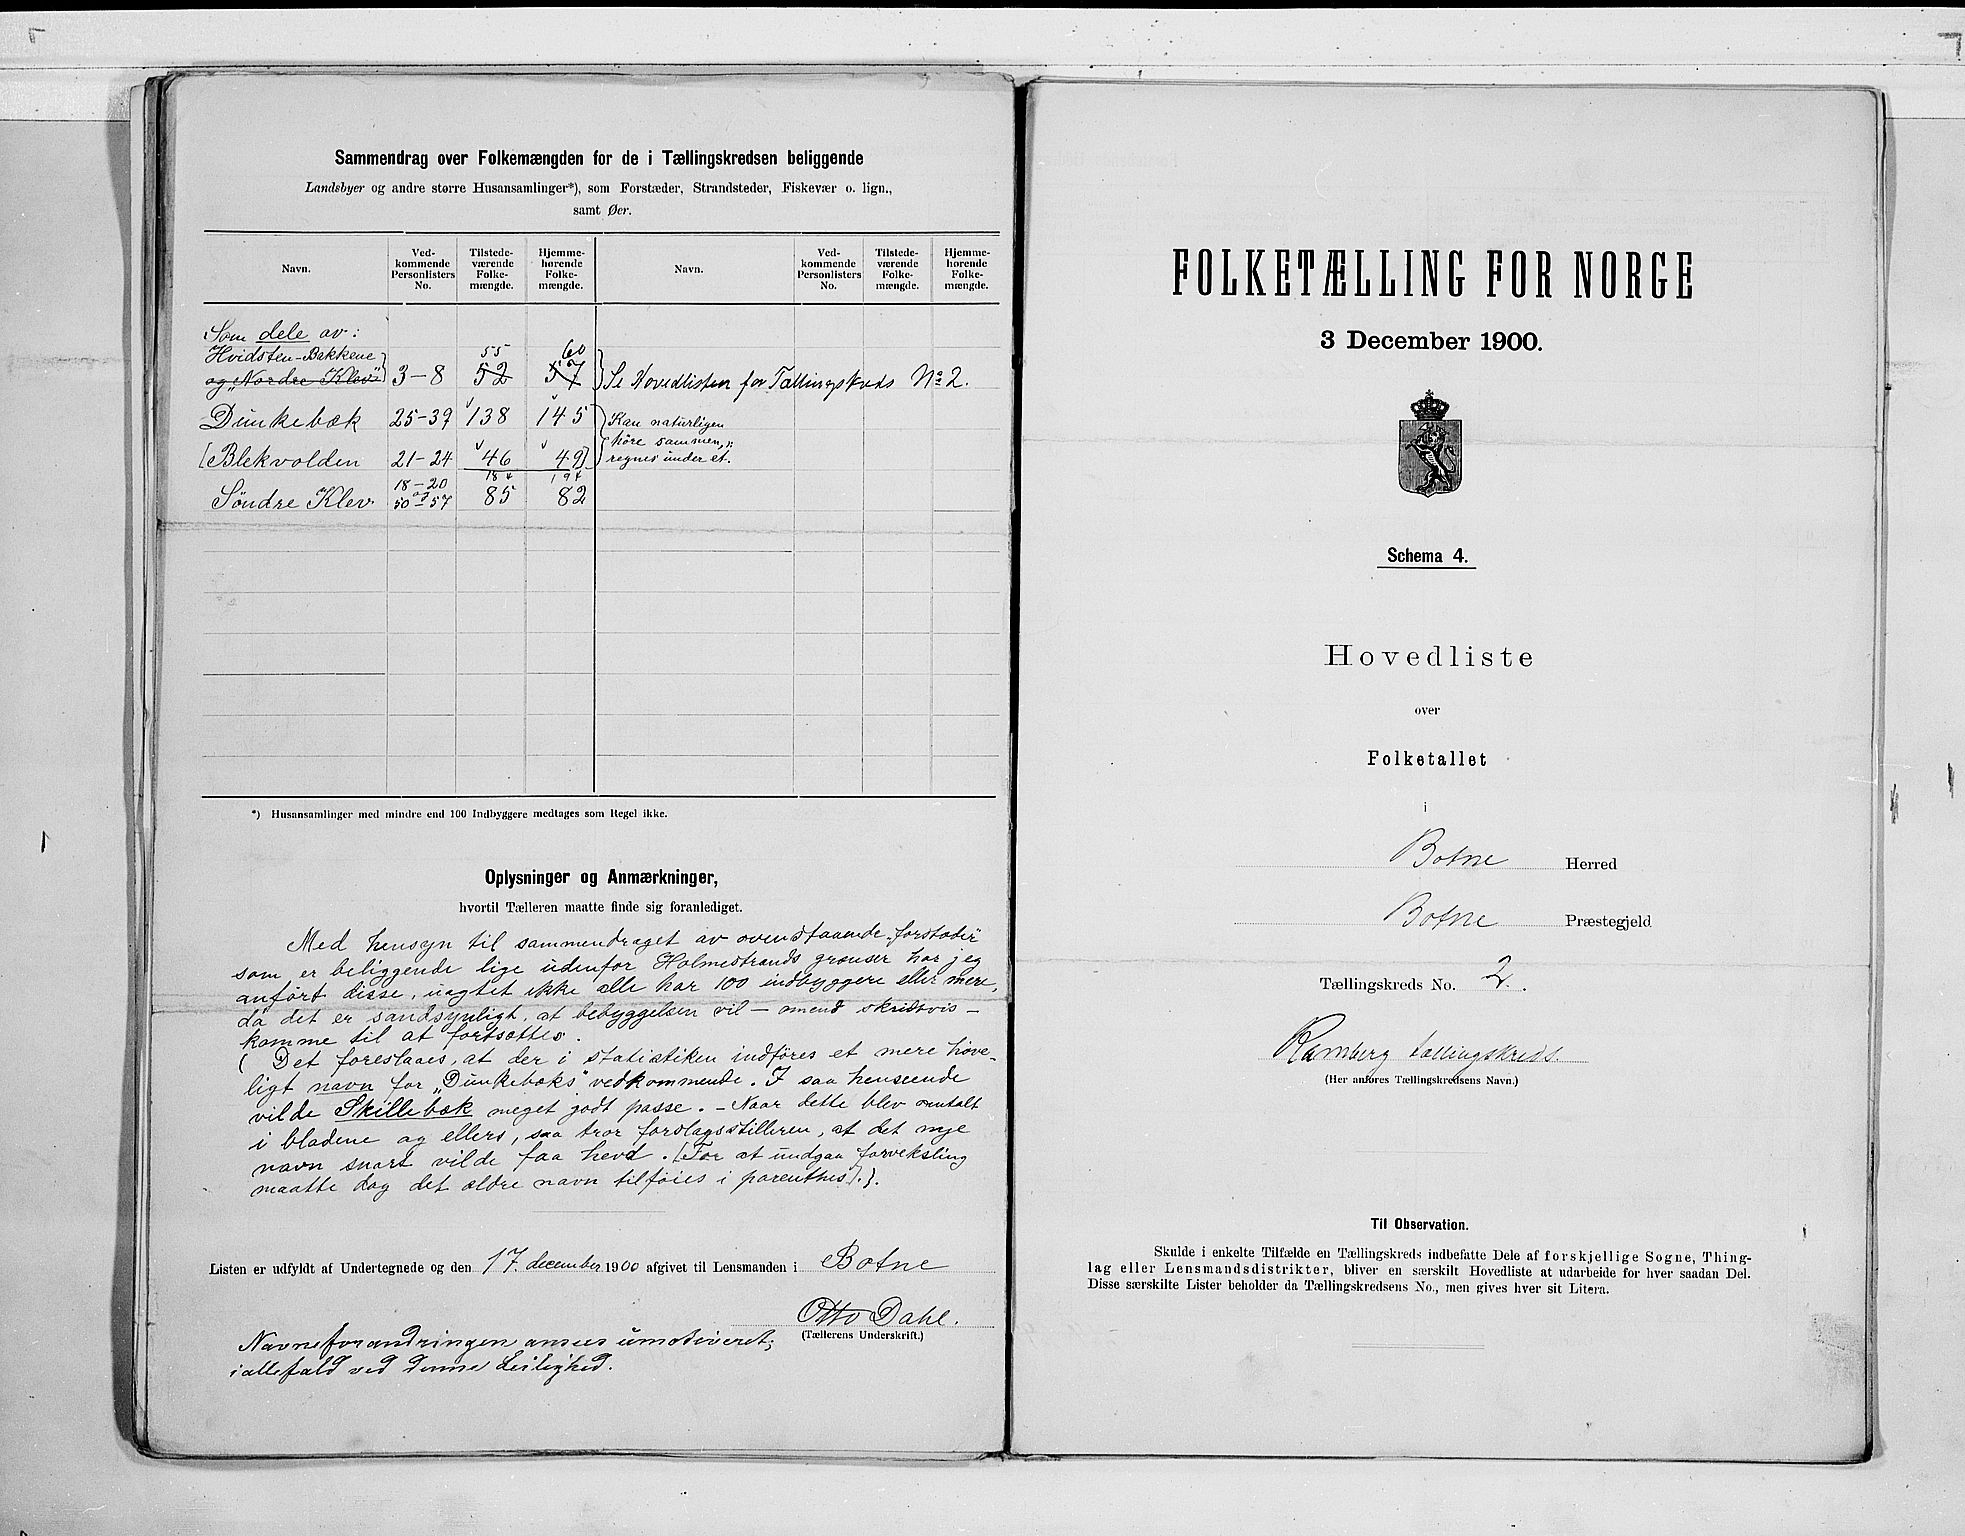 Sammendrag over Folkemængden for de i Tællingskredsen beliggende
Landsbyer og andre større Husansamlinger*), som Forstæder, Strandsteder, Fiskevær o. lign.,
samt Øer.
Navn. Ved-kommende Personlisters No. Tilstede-værende Folke-mængde. Hjemme-hørende Folke-mængde. Navn. Ved-kommende Personlisters No. Tilstede-værende Folke-mængde. Hjemme-hørende Folke-mængde.
Som dele av:
Hvidsten-Bakkene 55 60
og "Nordre Klev" 3-8 52 57 Se Hovedlisten for Tællingskreds No 2.
Dunkebæk 25-39 138 145 Kan naturligen
høre sammen,
[Blekvolden 21-24 46 49] regnes under et.
18-20 184 194
Søndre Klev. og 50-57 85 82
*) Husansamlinger med mindre end 100 Indbyggere medtages som Regel ikke.
Oplysninger og Anmærkninger,
hvortil Tælleren maatte finde sig foranlediget.
Med hensyn til sammendraget av ovenstaaende „forstæder"
som er beliggende lige udenfor Holmestrands grænser har jeg
anført disse, uagtet ikke alle har 100 indbyggere eller mere,
da det er sandsynligt, at bebyggelsen vil – omend skridtvis –
komme til at fortsættes.
( Det foreslaaes, at der i statistiken indføres et mere høve-
ligt navn for „Dunkebæks" vedkommende. I saa henseende
vilde Skillebæk meget godt passe. – Naar dette blev omtalt
i bladene og ellers, saa tror forslagsstilleren, at det nye
navn snart vilde faa hevd. (For at undgaa forveksling
maatte dog det ældre navn tilføies i parenthes).).
Listen er udfyldt af Undertegnede og den 17. december 1900 afgivet til Lensmanden i Botne
Otto Dahl.
(Tællerens Underskrift.)
Navneforandringen ansees umotiveret,
iallefald ved denne Leilighed.
FOLKETÆLLING FOR NORGE
3 December 1900.
Schema 4.
Hovedliste
over
Folketallet
i
Botne Herred
Botne Præstegjeld
Tællingskreds No. 2.
Ramberg tællingskreds.
(Her anføres Tællingskredsens Navn.)
Til Observation.
Skulde i enkelte Tilfælde en Tællingskreds indbefatte Dele af forskjellige Sogne, Thing-
lag eller Lensmandsdistrikter, bliver en særskilt Hovedliste at udarbeide for hver saadan Del.
Disse særskilte Lister beholder da Tællingskredsens No., men gives hver sit Litera.